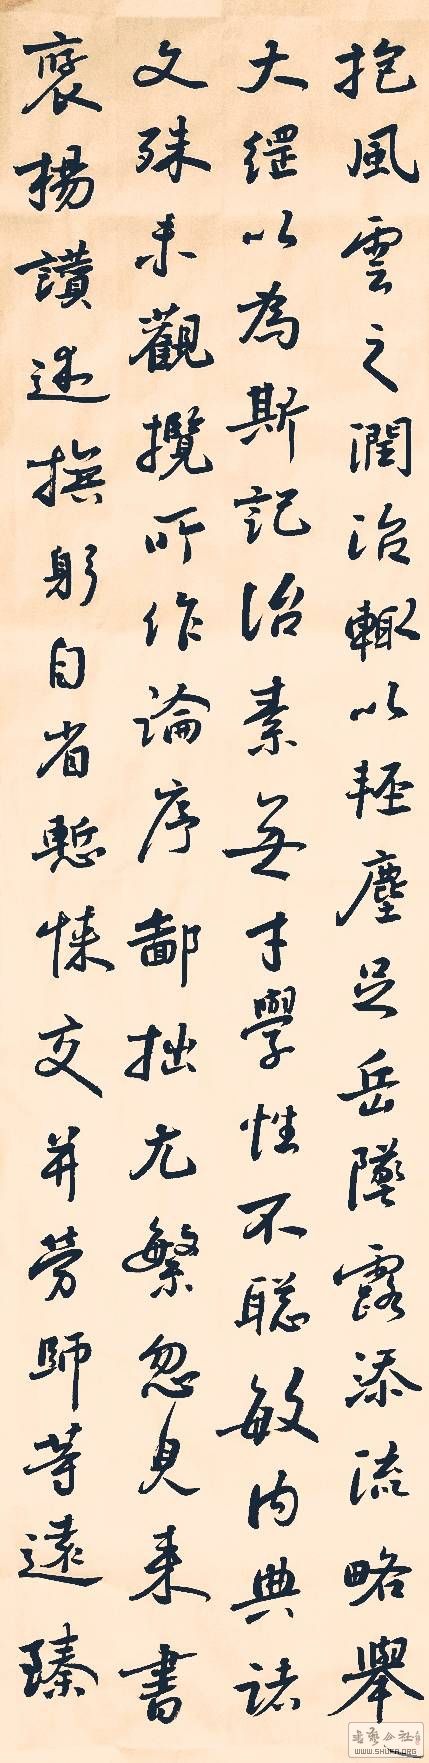 抱風雲之潤治輒以輕塵足岳墜露添流略舉
大綱以為斯記治素無才學性不聰敏內典諸
文殊未觀攬所作論序鄙拙尤繁忽見來書
褒揚讚述撫躬自省慙悚交并勞師等遠臻
WWW.SHUFA.ORG